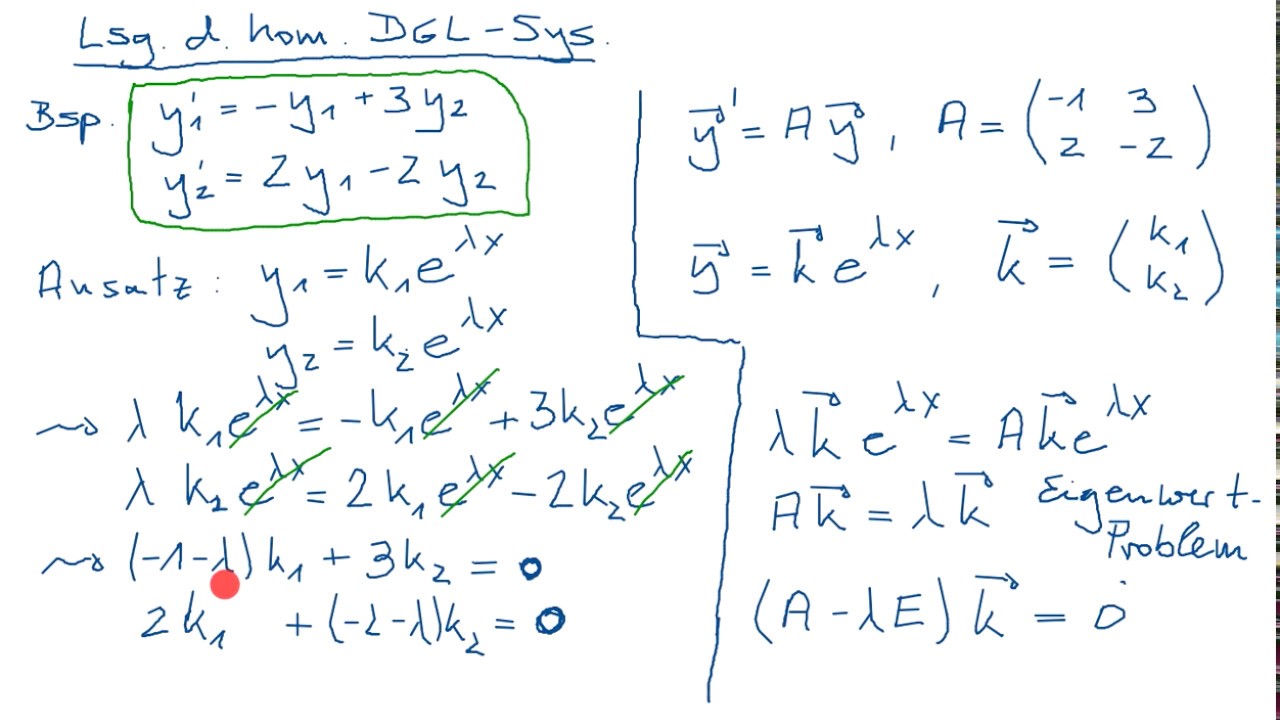 Lsg. d. hom. DGL-Sys.
Bsp. y₁' = -y₁ + 3y₂
y₂' = 2y₁ - 2y₂
Ansatz: y₁ = k₁e^{λx}
y₂ = k₂e^{λx}
⇝ λ k₁e^{λx} = -k₁e^{λx} + 3k₂e^{λx}
λ k₂e^{λx} = 2k₁e^{λx} - 2k₂e^{λx}
⇝ (-1-λ)k₁ + 3k₂ = 0
2k₁ + (-2-λ)k₂ = 0
y⃗' = Ay⃗, A = (-1 3
2 -2)
y⃗ = k⃗ e^{λx}, k⃗ = (k₁
k₂)
λk⃗ e^{λx} = Ak⃗e^{λx}
Ak⃗ = λk⃗ Eigenwert-
Problem
(A - λE)k⃗ = 0